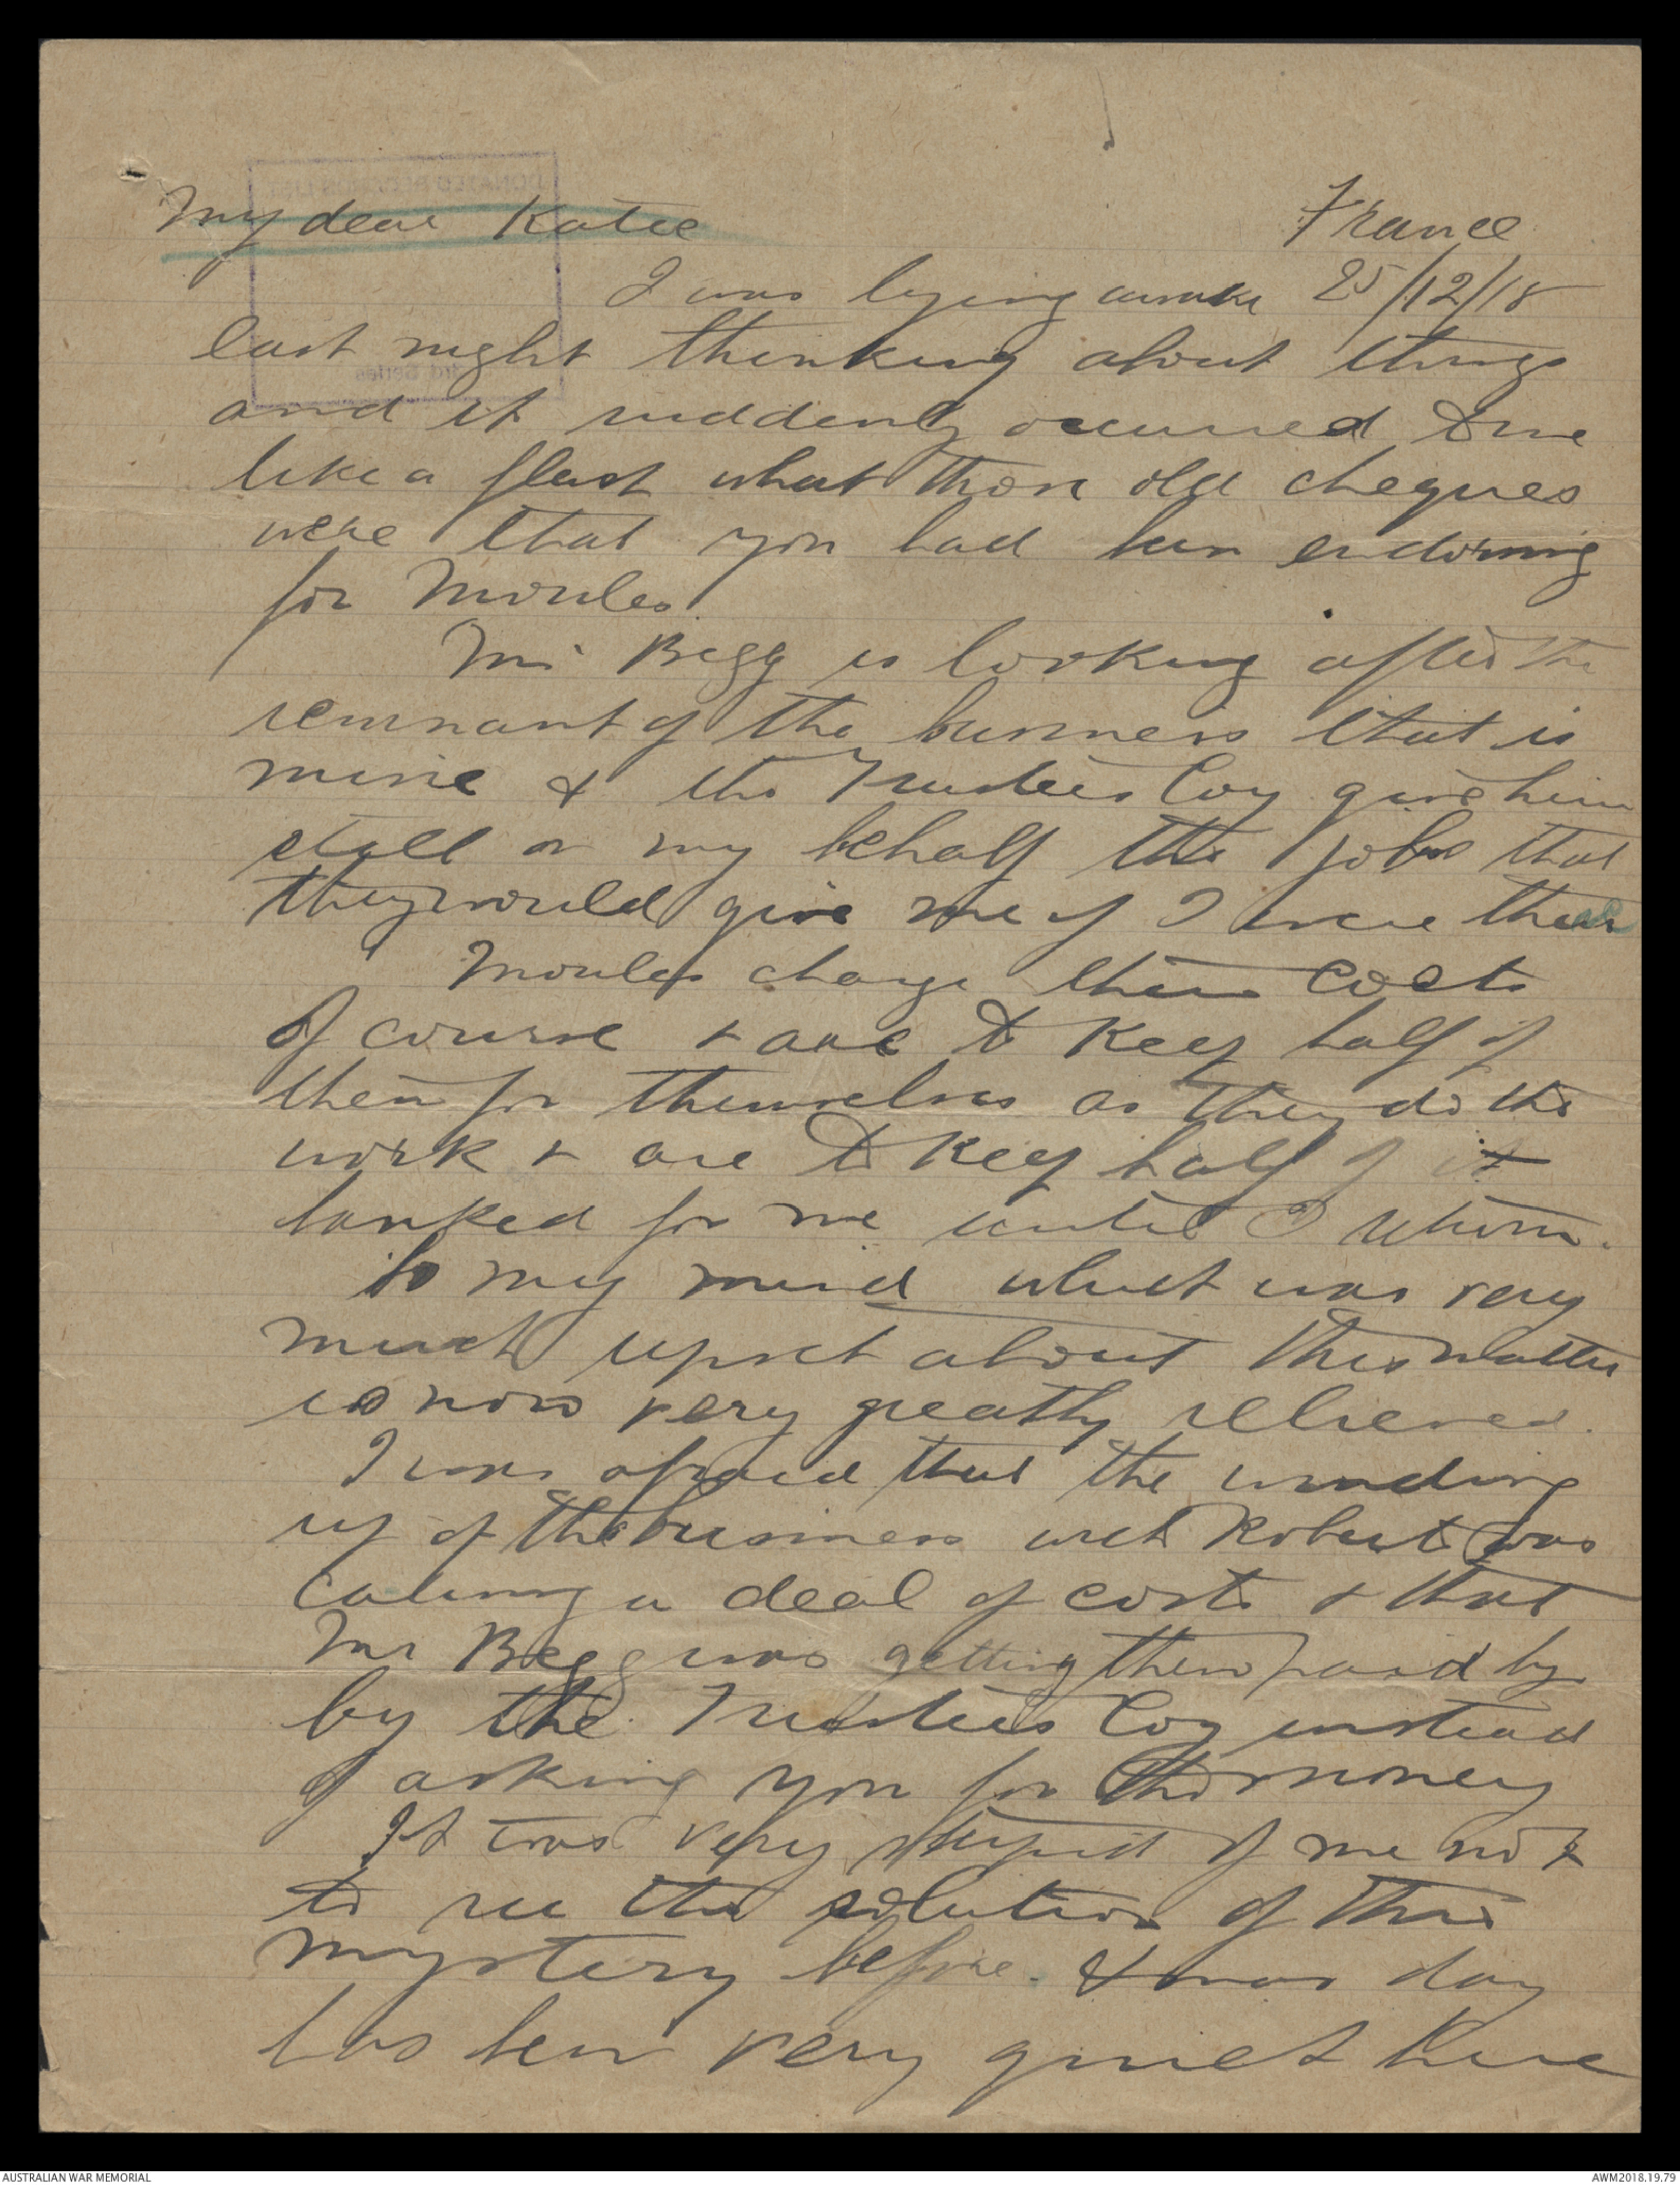 My dear Katie
France
I was lying awake 25/12/18
last night thinking about things
and it suddenly occurred to me
like a flash what those old cheques
were that you had been endorsing
for Moules
Mr Begg is looking after the
remnant of the business that is
mine & the Trustees Coy give him
still on my behalf the jobs that
they would give me if I were there
Moules charge their costs
of course & are to keep half of
them for themselves as they do the
work & are to keep half of it
banked for me until I return.
to my mind what was very
much upset about this matter
is now very greatly relieved.
I was afraid that the winding
up of the business with Robert was
causing a deal of costs & that
Mr Begg was getting them paid by
by the Trustees Coy instead
of asking you for the money
It was very stupid of me not
to see the solution of this
mystery before. Xmas day
has been very quiet here
AUSTRALIAN WAR MEMORIAL
AWM2018.19.79